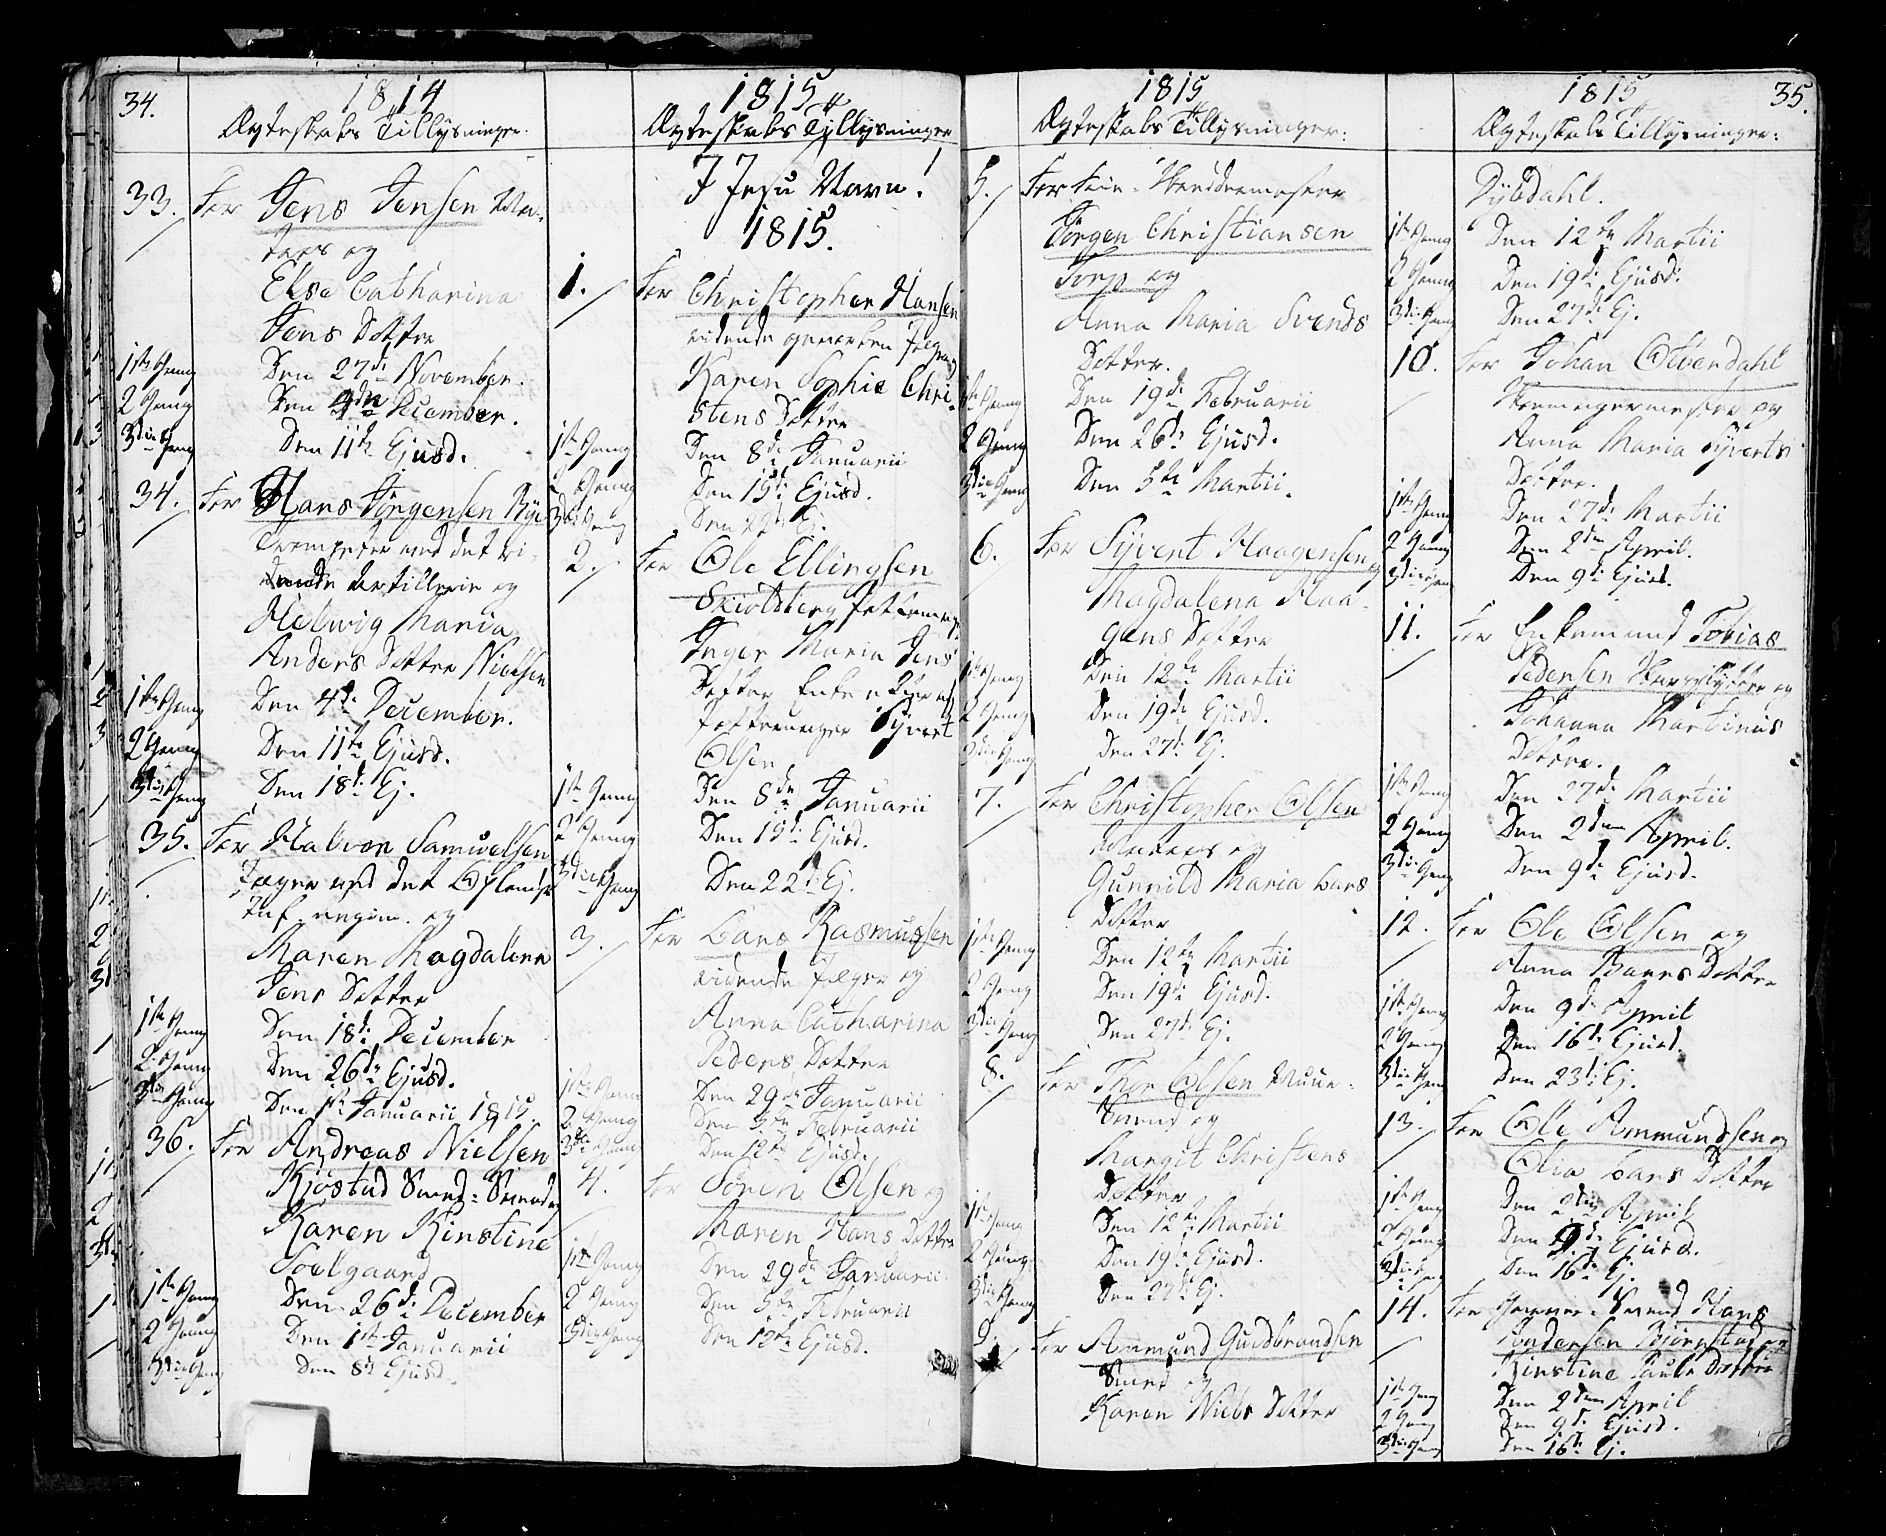 34.
1814
Ægteskabs Tillysninger.
33. For Jens Jensen Ma-
tros og
Else Catharina
Jens Datter
1ste Gang Den 27de November.
2 Gang Den 4de December.
3die Gang Den 11te Ejusd.
34. For Hans Jörgensen Bÿe
Trompeter ved det ri-
dende Artillerie og
Helwig Maria
Anders Datter Nielsen
1ste Gang Den 4de December.
2 Gang Den 11te Ejusd.
3die Gang Den 18de Ej.
35. For Halvor Samuelsen
Jæger ved det Oplandske
Inf. regim. og
Maren Magdalena
Jens Datter
1ste Gang Den 18de December
2 Gang Den 26de Ejusd.
3die Gang Den 1ste Januarii 1815.
36. For Andreas Nielsen
Kjöstad Smed-Svend og
Karen Kirstine
Soelgaard
1ste Gang Den 26de December
2 Gang Den 1ste Januarii
3die Gang Den 8de Ejusd.
1815
Ægteskabs Tyllysninger
I Jesu Navn!
1815.
1. For Christopher Hansen
ridende Jæger og
Karen Sophie Chri-
stens Datter
1ste Gang Den 8de Januarii
2 Gang Den 15de Ejusd.
3die Gang Den 22de Ej.
2. For Ole Ellingsen
Skiolsberg
Inger Maria Jens
Datter Enke efter
Syvert
Olsen
1ste Gang Den 8de Januarii
2 Gang Den 15de Ejusd.
3die Gang Den 22de Ej.
3. For Lars Rasmussen
ridende Jæger og
Anna Catharina
Peders Datter
1ste Gang Den 29de Januarii
2 Gang Den 5te Februarii
3die Gang Den 12te Ejusd.
4. For Sören Olsen og
Maren Hans Datter
1ste Gang Den 29de Januarii
2 Gang Den 5te Februarii
3die Gang Den 12te Ejusd.
1815
Ægteskabs Tillysninger:
5. For
Jörgen Christiansen
Torp og
Anna Maria Svends
Datter.
1ste Gang Den 19de Februarii
2 Gang Den 26de Ejusd.
3die Gang Den 5te Martii.
6. For Sÿvert Haagensen og
Magdalena Haa-
gens Datter
1ste Gang Den 12te Martii
2 Gang Den 19de Ejusd.
3die Gang Den 27de Ej.
7. For Christopher Olsen
og
Gunnild Maria Lars
Datter
1ste Gang Den 12te Martii
2 Gang Den 19de Ejusd.
3die Gang Den 27de Ej.
8. For Thor Olsen Muur-
svend og
Margit Christens
Datter
1ste Gang Den 12te Martii
2 Gang Den 19de Ejusd.
3die Gang Den 27de Ej.
9. For Ammund Guldbrandsen
Smed og
Karen Niels Datter
1815
35.
Ægteskabs Tillysninger:
Dybdahl.
1ste Gang Den 12te Martii
2 Gang Den 19de Ejusd:
3die Gang Den 27de Ej.
10. For Johan Olvendahl
og
Anna Maria Syverts
Datter.
1ste Gang Den 27de Martii
2 Gang Den 2den April.
3die Gang Den 9de Ejusd.
11. For Enkemand Tobias
Pedersen og
Johanna Martinus
Datter.
1ste Gang Den 27de Martii
2 Gang Den 2den April.
3die Gang Den 9de Ejusd.
12. For Ole Olsen og
Anna Datter
1ste Gang Den 9de April
2 Gang Den 16de Ejusd.
3die Gang Den 23de Ej.
13. For Ole Ammundsen og
Olia Lars Datter
1ste Gang Den 2den April
2 Gang Den 9de Ejusd.
3die Gang Den 16de Ej.
14. For Svend Hans
Björnstad og
Kirstine Pauls Datter
1ste Gang Den 2den April
2 Gang Den 9de Ejusd.
3die Gang Den 16de Ej.